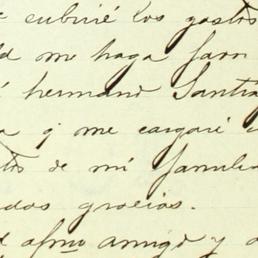 cubriré los gastos
me haga favor
hermano Santia
q me cargaré
tos de mi familia
das gracias.
afmo amigo y a